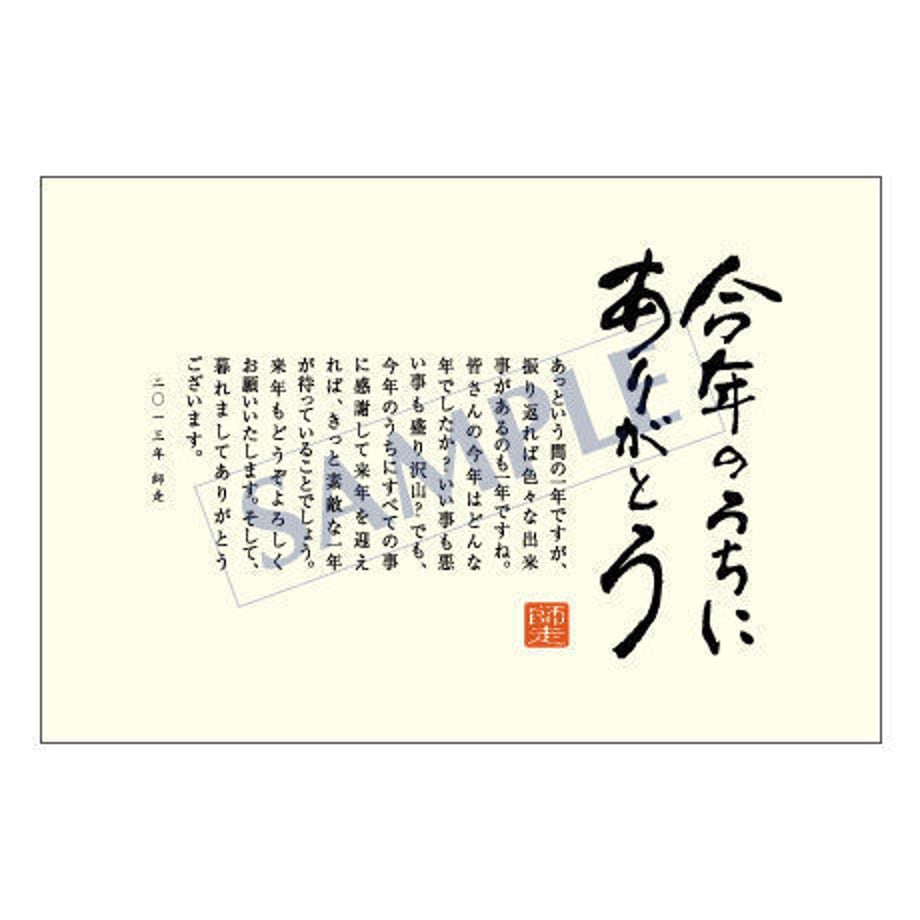 今年のうちに
ありがとう
あっという間の一年ですが、
振り返れば色々な出来
事があるのも一年ですね。
皆さんの今年はどんな
年でしたか?いい事も悪
い事も盛り沢山?でも、
今年のうちにすべての事
に感謝して来年を迎え
れば、きっと素敵な一年
が待っていることでしょう。
来年もどうぞよろしく
お願いいたします。そして、
暮れましてありがとう
ございます。
二〇一三年 師走
師走
SAMPLE